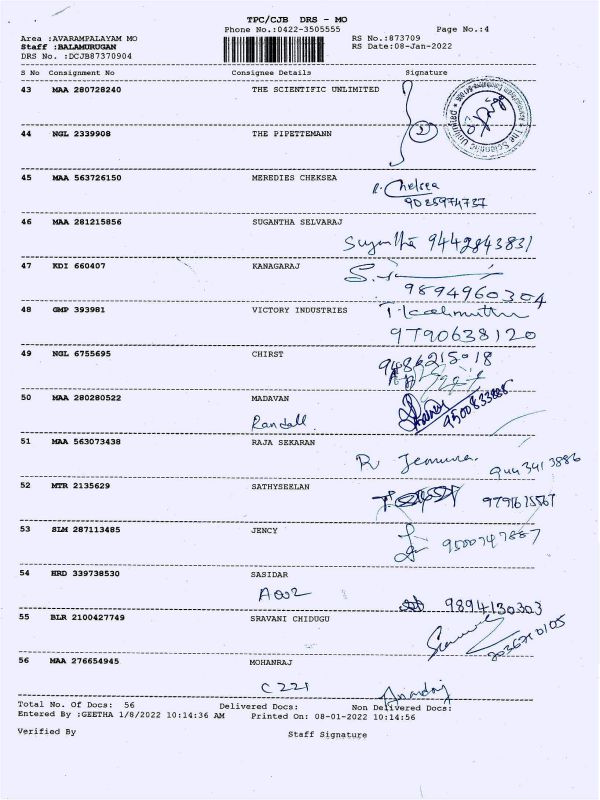 TPC/CJB DRS - MO
Phone No.:0422-3505555 Page No.:4
Area :AVARAMPALAYAM MO RS No.:873709
Staff :BALAMURUGAN RS Date:08-Jan-2022
DRS No. :DCJB87370904
S No Consignment No Consignee Details Signature
43 MAA 280728240 THE SCIENTIFIC UNLIMITED
The Scientific Unlimited
44 NGL 2339908 THE PIPETTEMANN
45 MAA 563726150 MEREDIES CHEKSEA
R. Chelsea
9025974737
46 MAA 281215856 SUGANTHA SELVARAJ
Sugantha 9442843831
47 KDI 660407 KANAGARAJ
9894960304
48 GMP 393981 VICTORY INDUSTRIES
9790638120
49 NGL 6755695 CHIRST
9486215018
50 MAA 280280522 MADAVAN
Randall
9500833888
51 MAA 563073438 RAJA SEKARAN
9443413886
52 MTR 2135629 SATHYSEELAN
53 SLM 287113485 JENCY
9500747887
54 HRD 339738530 SASIDAR
A002
9894130303
55 BLR 2100427749 SRAVANI CHIDUGU
56 MAA 276654945 MOHANRAJ
C 221
Total No. Of Docs: 56 Delivered Docs: Non Delivered Docs:
Entered By :GEETHA 1/8/2022 10:14:36 AM Printed On: 08-01-2022 10:14:56
Verified By Staff Signature